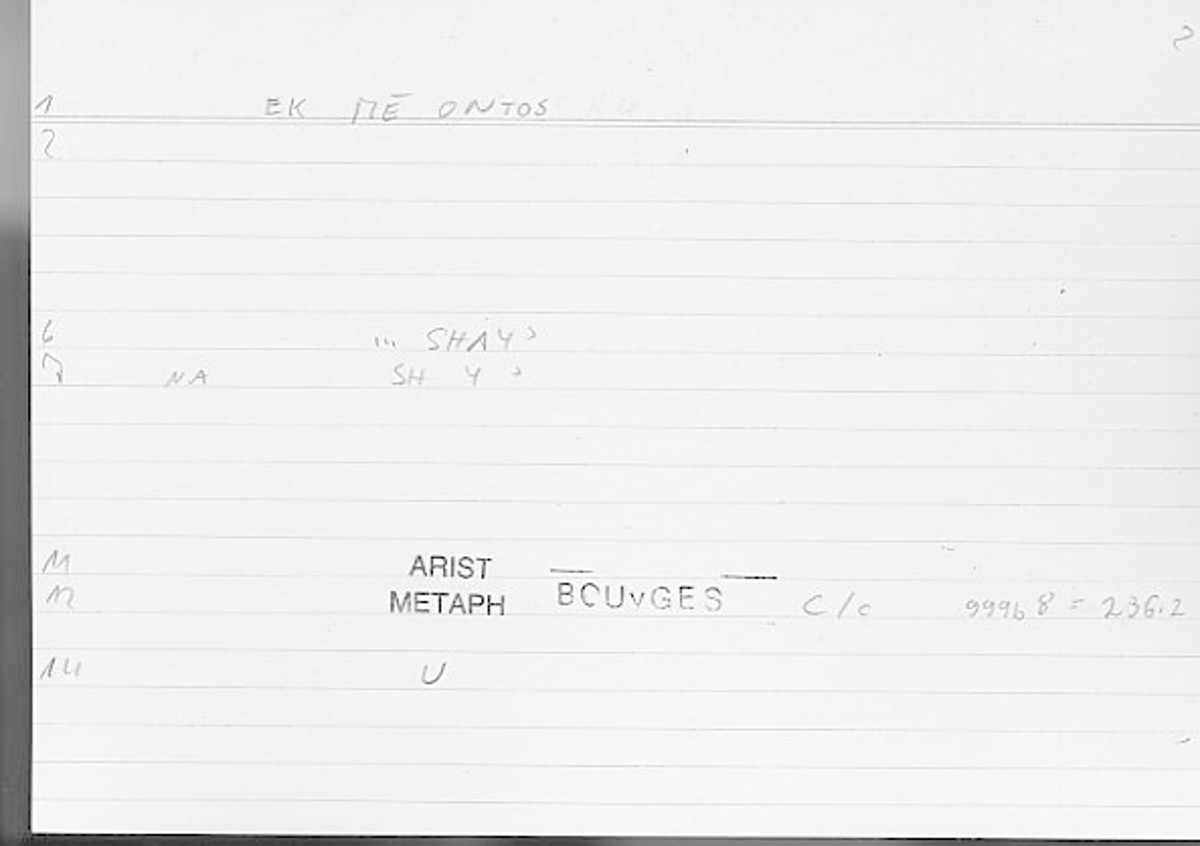 2
1 EK MĒ ONTOS
2
6 ... SHAYʾ
7 NA SH Y ʾ
11 ARIST
12 METAPH BCUvGES C/c 999b 8 = 236.2
14 U